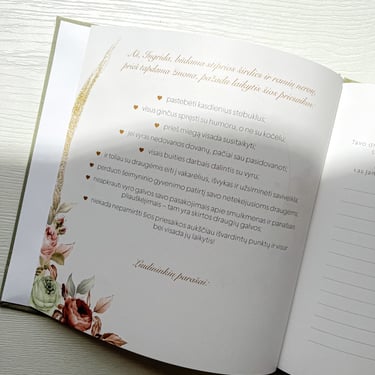 Aš, Ingrida, būdama stiprios širdies ir ramių nervų,
prieš tapdama žmona, pažadu laikytis šios priesaikos:
pastebėti kasdienius stebuklus;
visus ginčus spręsti su humoru, o ne su kočėlu;
prieš miegą visada susitaikyti;
jei vyras nedovanos dovanų, pačiai sau pasidovanoti;
visais buities darbais dalintis su vyru;
ir toliau su draugėmis eiti į vakarėlius, išvykas ir užsiiminėti saviveikla;
perduoti šeimyninio gyvenimo patirtį savo netekėjusioms draugėms;
neapkrauti vyro galvos savo pasakojimais apie smulkmenas ir panašias
plaušėkmes – tam yra skirtos draugių galvos;
niekada nepamiršti šios priesaikos aukščiau išvardintų punktų ir visur
bei visada jų laikytis!
Liudininkių parašai: